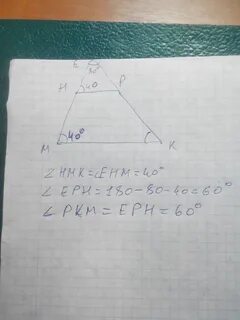 E
80°
H 40 P
M 40° K
∠HMK=∠EHM=40°
∠EPH=180-80-40=60°
∠PKM=EPH=60°